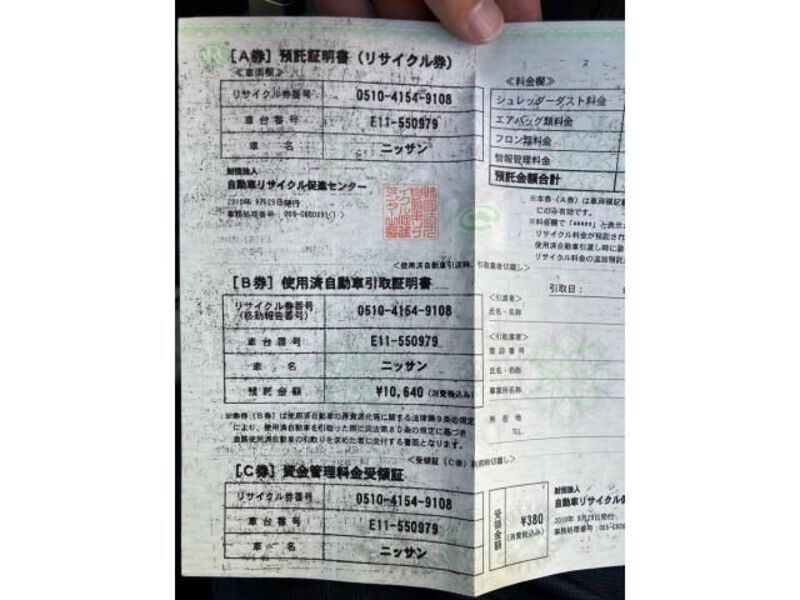 [A券] 預託証明書(リサイクル券)
≪車両欄≫
リサイクル券番号 0510-4154-9108
車台番号 E11-550979
車名 ニッサン
財団法人
自動車リサイクル促進センター
2010年 9月29日発行
≪料金欄≫
シュレッダーダスト料金
エアバッグ類料金
フロン類料金
情報管理料金
預託金額合計
※本券(A券)は車両欄記
にのみ有効です。
※料金欄で「*****」と表示
リサイクル料金が預託され
使用済自動車引渡し時に装
リサイクル料金の追加預託
<使用済自動車引渡時、引取業者切離し>
[B券] 使用済自動車引取証明書
リサイクル券番号
(移動報告番号) 0510-4154-9108
車台番号 E11-550979
車名 ニッサン
預託金額 ¥10,640 (消費税込み)
引取日:
<引渡者>
氏名・名称
<引取業者>
登録番号
氏名・名称
事業所名称
所在地
TEL
※本券(B券)は使用済自動車の再資源化等に関する法律第9条の規定
により、使用済自動車を引取った際に同法第80条の規定に基づき
当該使用済自動車の引取りを求めた者に交付する書面となります。
[C券] 資金管理料金受領証
リサイクル券番号 0510-4154-9108
車台番号 E11-550979
車名 ニッサン
受領金額 ¥380
(消費税込み)
財団法人
自動車リサイクル
2010年 9月29日発行